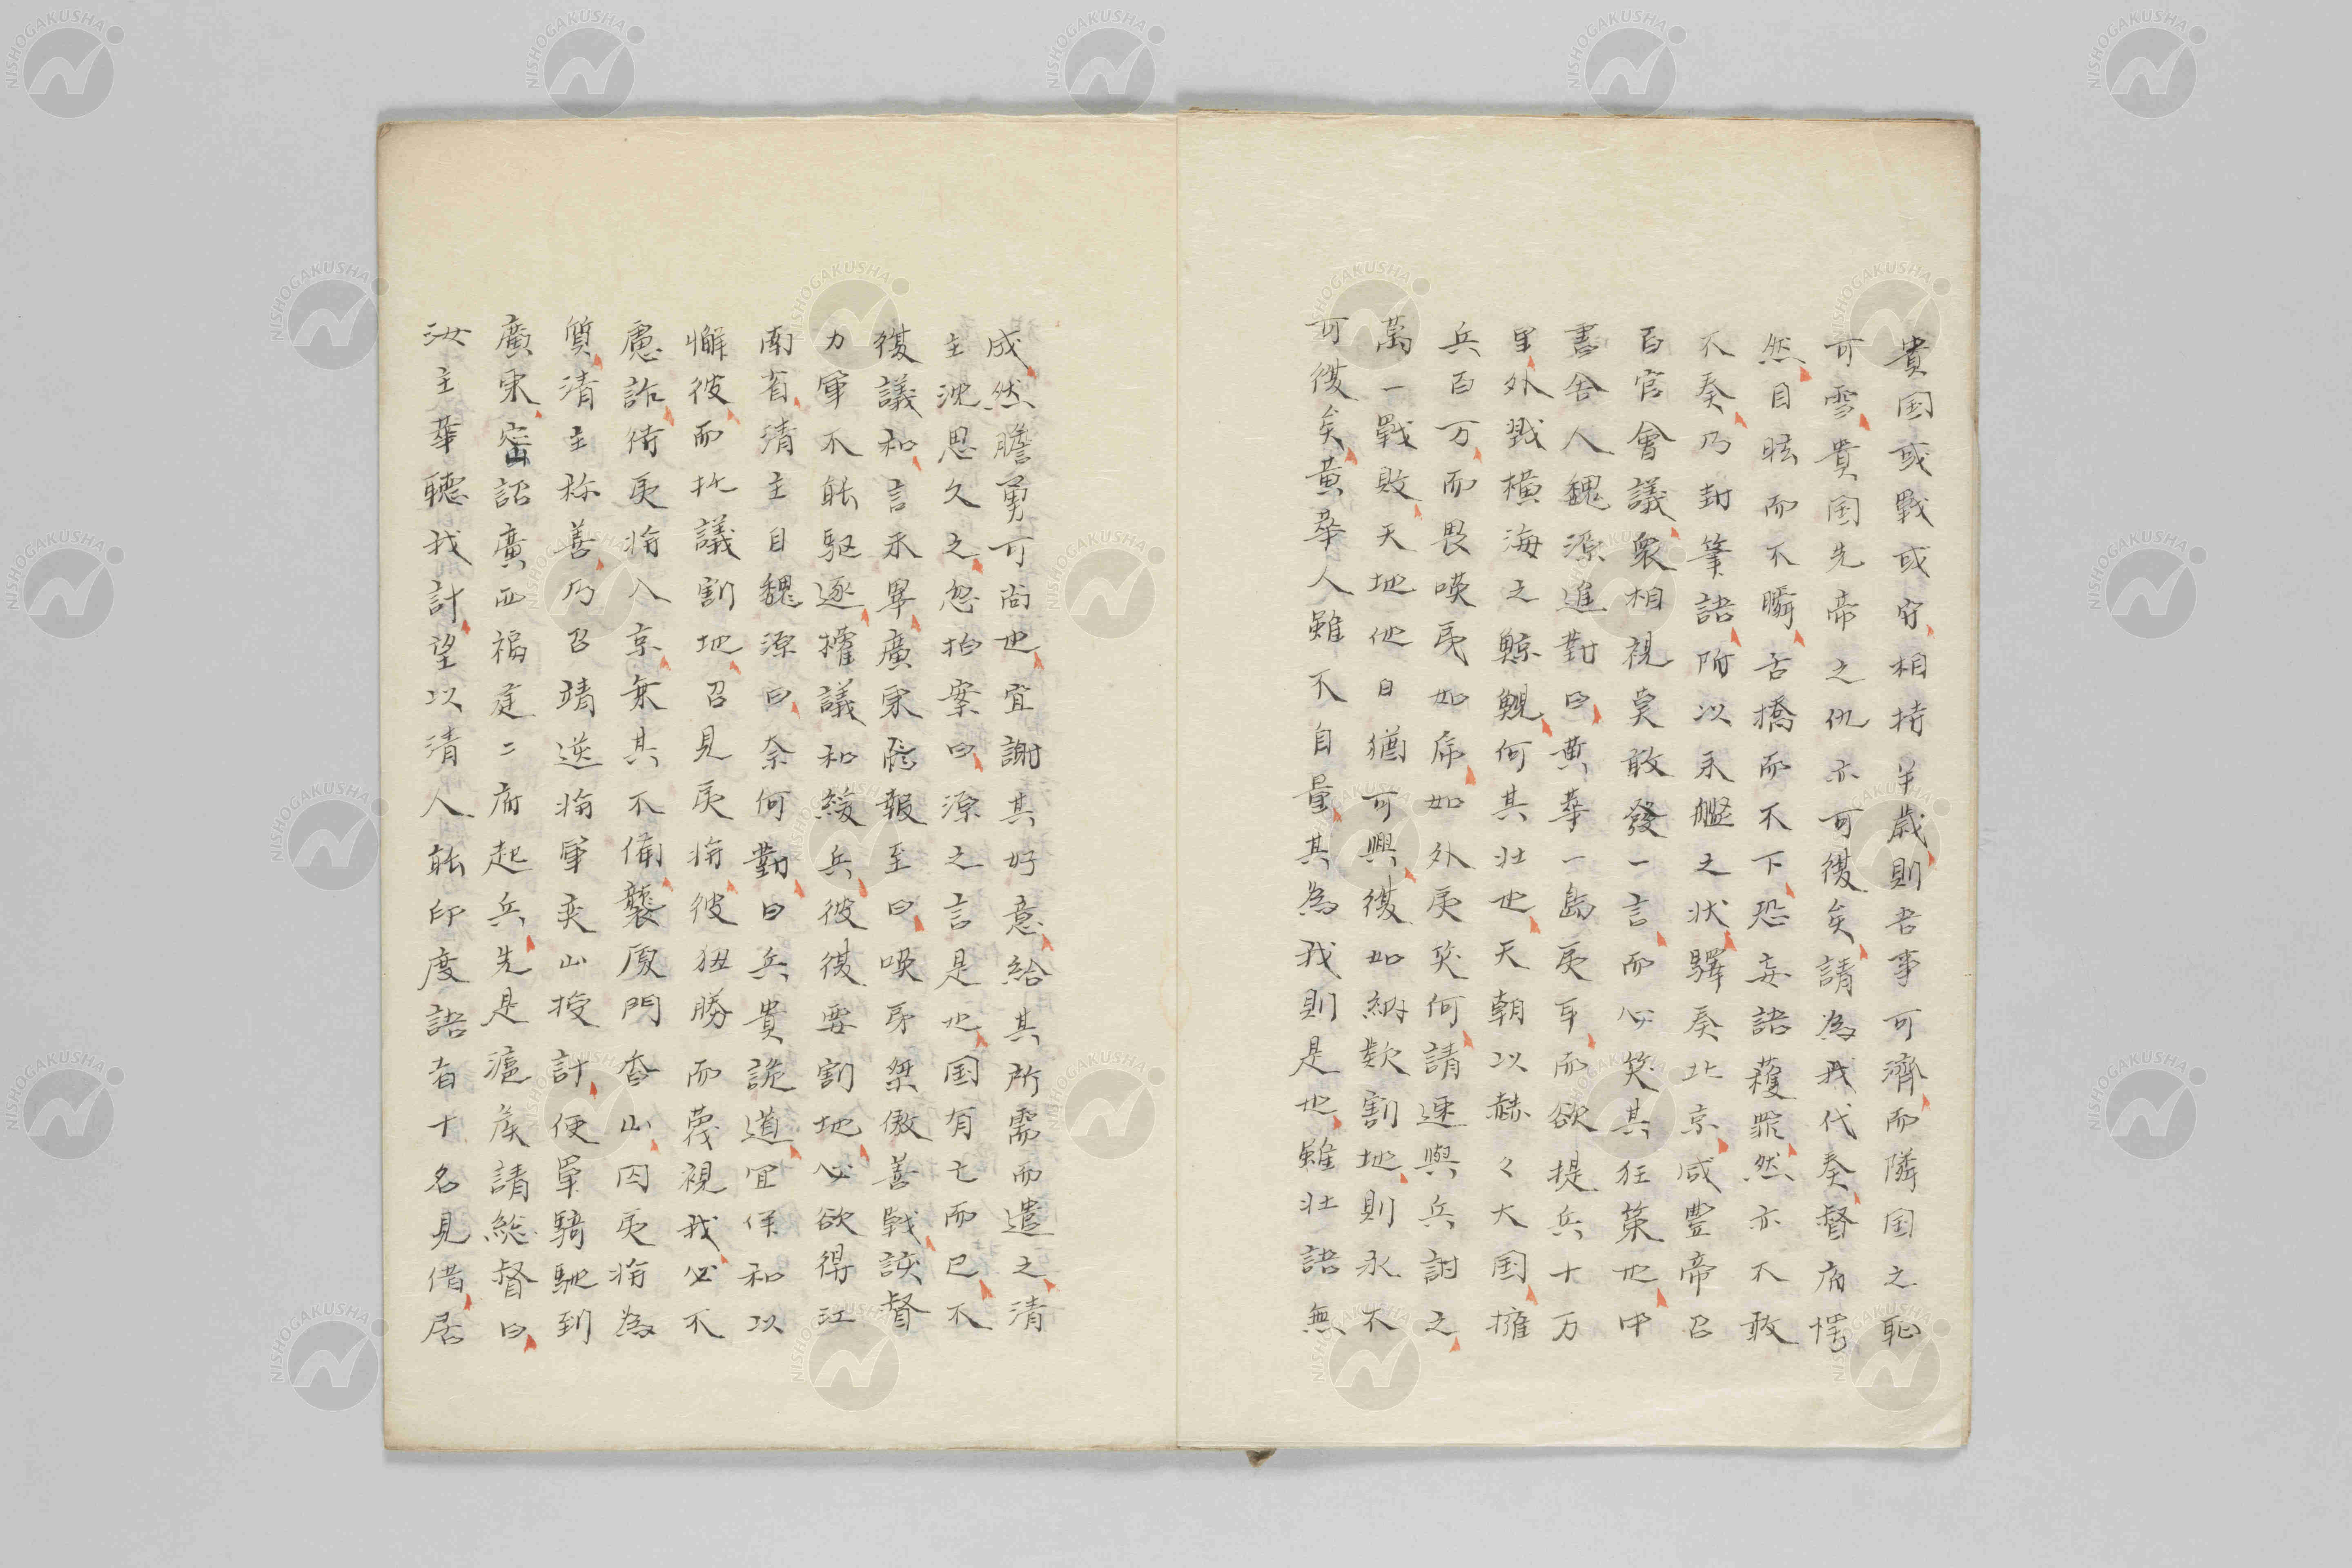 貴国或戦或守相持半歳則吾事可濟而隣国之恥
可雪貴国先帝之仇亦可復矣請為我代奏督府愕
然目眩而不瞬舌撟而不下恐妄語獲罪然亦不敢
不奏乃封筆語所以示艦之状驛奏北京咸豊帝召
百官會議衆相視莫敢發一言而心笑其狂策也中
書舎人魏源進對曰黄華一島夷耳而欲提兵十万
里外戮横海之鯨鯢何其壮也天朝以赫々大国擁
兵百万而畏暎夷如席如外夷笑何請速與兵討之
萬一戰敗天地他日猶可興復如納欵割地則永不
可復矣黄華人雖不自量其為我則是也雖壮語無
成然膽勇可尚也宜謝其好意給其所需而遣之清
主沈思久之忽拍案曰源之言是也国有亡而已不
復議和言未畢廣東飛報至曰暎虜桀傲善戦該督
力軍不能驅逐擅議和緩兵彼復要割地必欲得江
南省清主目魏源曰奈何對曰兵貴詭道宜佯和以
懈彼而批議割地召見夷将彼狃勝而蔑視我必不
慮詐待夷将入京乗其不備襲厦門香山囚夷将為
質清主称善乃召靖逆将軍奕山授計便單騎馳到
廣東密詔廣西福建二府起兵先是滬侯請総督曰
汝主華聴我計望以清人能印度語者十名見借居